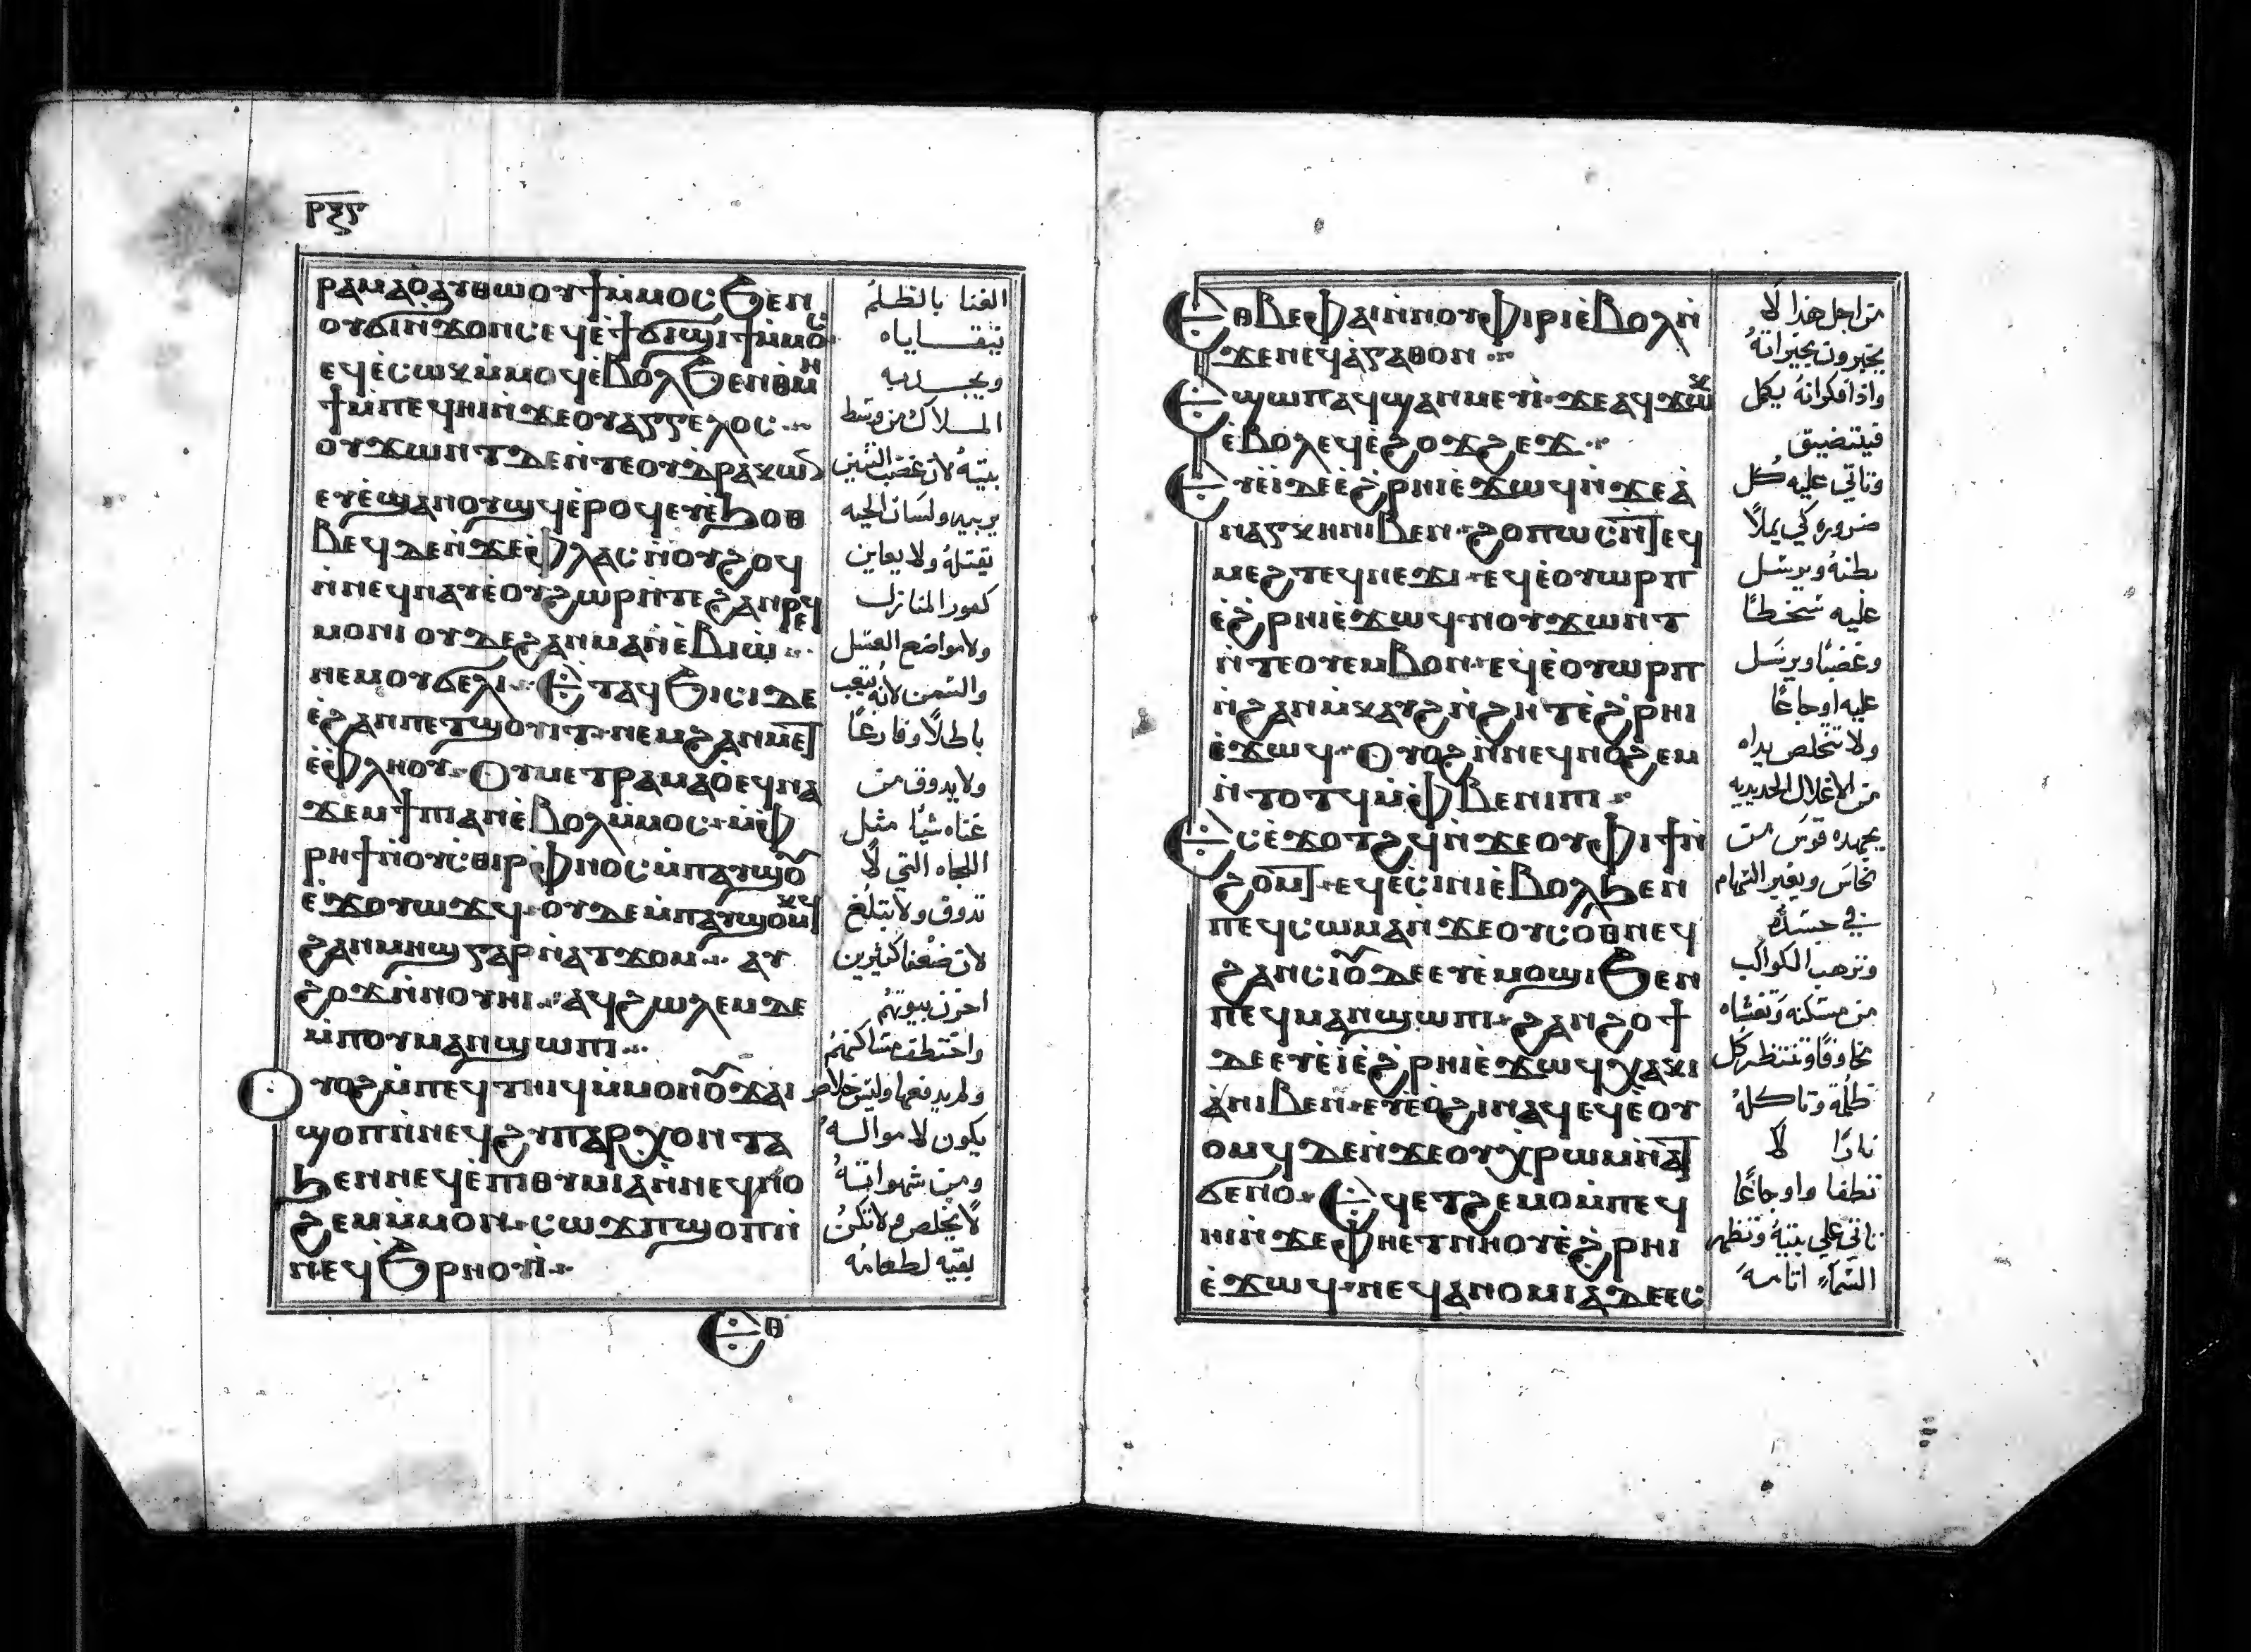 ⲣⲝⲋ
ⲣⲁⲙⲁⲟⲁⲩⲑⲱⲟⲩϯⲙ̀ⲙⲟⲥϧⲉⲛ
ⲟⲩϭⲓⲛ̀ϫⲟⲛⲥⲉϥⲉ̀ϯϭⲱϣϯⲙ̀ⲙⲟⲥ
ⲉϥⲉ̀ⲥⲱⲕⲙ̀ⲙⲟϥⲉ̀ⲃⲟⲗϧⲉⲛⲑⲙⲏ
ϯⲙ̀ⲡⲉϥⲏⲓⲛ̀ϫⲉⲟⲩⲁⲅⲅⲉⲗⲟⲥ
ⲟⲩϫⲱⲛⲧⲇⲉⲛ̀ⲧⲉⲟⲩⲇ̀ⲣⲁⲕⲱⲛ
ⲉⲩⲉ̀ϣⲁⲛⲟⲩϣϥⲉ̀ⲣⲟϥⲉⲩⲉ̀ϧⲟⲑ
ⲃⲉϥⲇⲉⲛ̀ϫⲉⲫ̀ⲗⲁⲥⲛ̀ⲟⲩϩⲟϥ
ⲛ̀ⲛⲉϥⲛⲁⲩⲉ̀ⲟⲩϩⲱⲣⲛ̀ⲧⲉϩⲁⲛⲣⲉϥ
ⲙⲟⲛⲓⲟⲩⲇⲉϩⲁⲛⲙⲁⲛ̀ⲉ̀ⲃⲓⲱ
ⲛⲉⲙⲟⲩϭⲉⲗⲓ ⲉⲧⲁϥϧⲓⲥⲓⲇⲉ
ⲉ̀ϩⲁⲛⲡⲉⲧϣⲟⲩⲓⲧ ⲛⲉⲙϩⲁⲛⲙⲉⲧ
ⲉ̀ⲫ̀ⲗⲏⲟⲩ ⲟⲩⲙⲉⲧⲣⲁⲙⲁⲟ̀ⲉϥⲛⲁ
ϫⲉⲙϯⲡⲓⲁⲛⲉ̀ⲃⲟⲗⲙ̀ⲙⲟⲥ ⲙ̀ⲫ̀
ⲣⲏϯⲛ̀ⲟⲩⲥ̀ⲑⲓⲣⲫ̀ⲛⲟⲥⲙ̀ⲡⲁⲩϣⲟ
ⲉ̀ϫⲟⲩⲱϫϥ ⲟⲩⲇⲉⲙ̀ⲡⲁⲩϣⲟⲙⲕϥ
ϩⲁⲛⲙⲏϣⲅⲁⲣⲛ̀ⲁⲧϫⲟⲙ ⲁϥ
ϩⲟϫⲛ̀ⲛⲟⲩⲏⲓ ⲁϥϩⲱⲗⲉⲙⲇⲉ
ⲙ̀ⲡⲟⲩⲙⲁⲛϣⲱⲡⲓ
ⲟⲩⲟϩⲙ̀ⲡⲉϥⲧⲏⲓϥⲙ̀ⲙⲟⲛⲟⲩϫⲁⲓ
ϣⲟⲡⲛ̀ⲛⲉϥϩⲩⲡⲁⲣⲭⲟⲛⲧⲁ
ϧⲉⲛⲛⲉϥⲉ̀ⲡⲓⲑⲩⲙⲓⲁⲛ̀ⲛⲉϥⲛⲟ
ϩⲉⲙⲙ̀ⲙⲟⲛ ⲥⲱϫⲡϣⲟⲡⲛ̀
ⲛⲉϥϧⲣⲏⲟⲩⲓ̀
ⲉⲑ
الغنا بالظلم
يتقـاياه
ويجـدبه
المـلاك من وسط
بيته لان غضب التنين
يربيه ولسان الحيه
يقتله ولا يعاين
كعور المنازل
ولا مواضع العسل
والسمن لانه تعب
باطلاً وفارغاً
ولا يدوق من
غناه شيا مثل
اللجاه التي لا
تدوق ولا تبتلع
لان ضعفا كثيرين
احزن بيوتهم
واختطف مساكنهم
ولم يدفعها وليس خلاص
يكون لامواله
ومن شهواته
لا يخلص ولا تكن
بقيه لطعامه
ⲉⲑⲃⲉⲫⲁⲓⲛ̀ⲛⲟⲩⲫⲓⲣⲓⲉ̀ⲃⲟⲗⲛ̀
ϫⲉⲛⲉϥⲁ̀ⲅⲁⲑⲟⲛ
ⲉϣⲱⲡⲁϥϣⲁⲛⲙⲉⲩⲓ̀ ϫⲉⲁϥϫⲱⲕ
ⲉ̀ⲃⲟⲗⲉϥⲉ̀ϩⲟϫϩⲉϫ
ⲉⲩⲉ̀ⲓ̀ⲇⲉⲉ̀ϩ̀ⲣⲏⲓⲉ̀ϫⲱϥⲛ̀ϫⲉⲁ̀
ⲛⲁⲅⲕⲏⲛⲓⲃⲉⲛ ϩⲟⲡⲱⲥⲛ̀ⲧⲉϥ
ⲙⲉϩⲧⲉϥⲛⲉϫⲓ ⲉϥⲉ̀ⲟⲩⲱⲣⲡ
ⲉ̀ϩ̀ⲣⲏⲓⲉ̀ϫⲱϥⲛⲟⲩϫⲱⲛⲧ
ⲛ̀ⲧⲉⲟⲩⲉⲙⲃⲟⲛ ⲉϥⲉ̀ⲟⲩⲱⲣⲡ
ⲛ̀ϩⲁⲛⲙ̀ⲕⲁⲩϩⲛ̀ϩⲏⲧⲉ̀ϩ̀ⲣⲏⲓ
ⲉ̀ϫⲱϥ ⲟⲩⲟϩⲛ̀ⲛⲉϥⲛⲟϩⲉⲙ
ⲛ̀ⲧⲟⲧϥⲙ̀ⲫ̀ⲃⲉⲛⲓⲡⲓ
ⲉⲥⲉ̀ϫⲟⲧϩϥⲛ̀ϫⲉⲟⲩⲫⲓϯⲛ̀
ϩⲟⲙⲧ ⲉϥⲉ̀ⲥⲓⲛⲓⲉ̀ⲃⲟⲗϧⲉⲛ
ⲡⲉϥⲥⲱⲙⲁⲛ̀ϫⲉⲟⲩⲥⲟⲑⲛⲉϥ
ϩⲁⲛⲥⲓⲟⲩⲇⲉⲉⲩⲉ̀ⲙⲟϣⲓϧⲉⲛ
ⲡⲉϥⲙⲁⲛϣⲱⲡⲓ ϩⲁⲛϩⲟϯ
ⲇⲉⲉⲩⲉ̀ⲓ̀ⲉ̀ϩ̀ⲣⲏⲓⲉ̀ϫⲱϥⲭⲁⲕⲓ
ⲁ̀ⲛⲓⲃⲉⲛ ⲉⲩⲉ̀ⲟ̀ϩⲓⲛⲁϥⲉϥⲉ̀ⲟⲩ
ⲟⲙϥⲇⲉⲛ̀ϫⲉⲟⲩⲭⲣⲱⲙⲛ̀ⲁⲧ
ϭⲉⲛⲟ ⲉϥⲉⲧϩⲉⲙⲕⲟⲙ̀ⲡⲉϥ
ⲏⲓⲛ̀ϫⲉⲫⲏⲉⲧⲛⲏⲟⲩⲉ̀ϩ̀ⲣⲏⲓ
ⲉ̀ϫⲱϥ ⲛⲉϥⲁⲛⲟⲙⲓⲁⲇⲉⲉⲥ
من اجل هذا لا
يخبرون بخيراته
واذا فكر انه يكمل
فيتضيق
وتاتي عليه كل
ضروره كي يملا
بطنه ويرسل
عليه سخطا
وغضبا ويرسل
عليه اوجاعا
ولا تتخلص يداه
من الاغلال الحديديه
يجهده قوس من
نحاس ويعبر السهام
في جسده
وتذهب الكواكب
من مسكنه وتغشاه
مخاوفا وتنتظره كل
ظلمة وتاكله
نارا لا
تطفا واوجاعا
تاتي علي بيته وتظهر
السماء اثامه